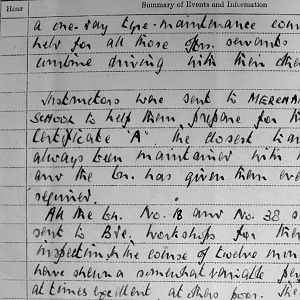 Hour
Summary of Events and Information
a one-day tyre-maintenance cou
help for all those Ofrs. servants
combine driving with their othe
Instructors were sent to MERCHAN
SCHOOL to help them prepare for th
Certificate "A". The closest liais
always been maintained with
and the Bn. has given them eve
required.
All the Bn. No. 18 and No. 38 s
sent to Bde. workshops for the
inspection. In the course of twelve mon
have shewn a somewhat variable per
at times excellent, at others poor. The